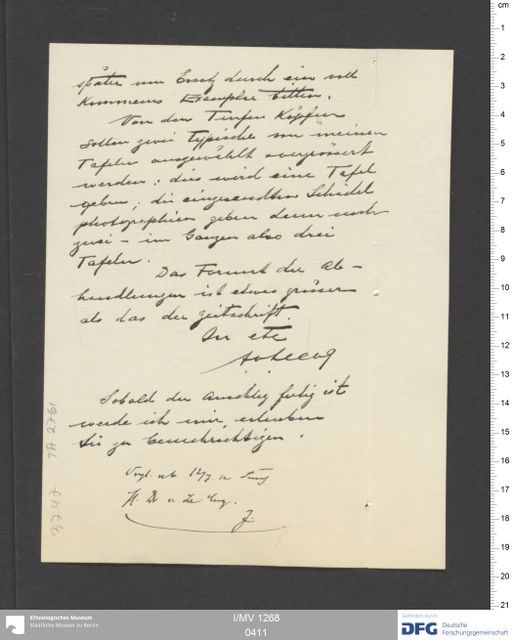 später um Ersatz durch ein voll
kommenes Exemplar bitten.
Von den Turfan Köpfen
sollen zwei typische von meinen
Tafeln ausgewählt & vergrössert
werden; dies wird eine Tafel
geben; die eingesandten Schädel
photographien geben dann noch
zwei – im Ganzen also drei
Tafeln.
Das Format der Ab-
handlungen ist etwas grösser
als das der Zeitschrift.
Ihr etc
AvLeCoq
Sobald der Anschlag fertig ist
werde ich mir erlauben
Sie zu benachrichtigen.
H. Dr v. Le Coq.
TA 2761
cm
1
2
3
4
5
6
7
8
9
10
11
12
13
14
15
16
17
18
19
20
21
Ethnologisches Museum
Staatliche Museen zu Berlin
I/MV 1268
0411
Gefördert durch
DFG Deutsche
Forschungsgemeinschaft